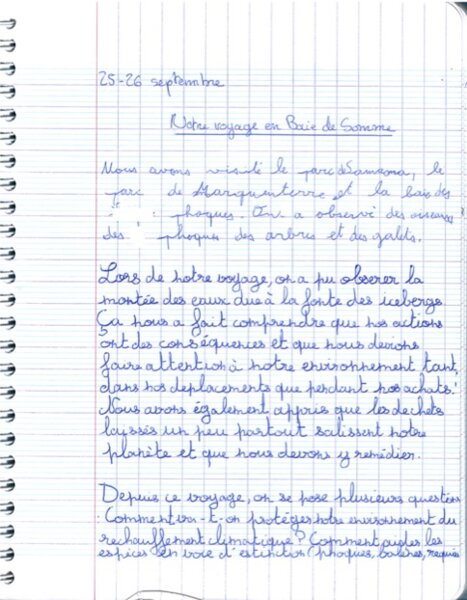 25-26 septembre
Notre voyage en Baie de Somme
Nous avons visité le parc de Samara, le
parc de Marquenterre et la baie des
phoques. On a observé des oiseaux
des phoques des arbres et des galets.
Lors de notre voyage, on a pu observer la
montée des eaux due à la fonte des icebergs
Ça nous a fait comprendre que nos actions
ont des conséquences et que nous devons
faire attention à notre environnement tant
dans nos deplacements que pendant nos achats.
Nous avons également appris que les dechets
laissés un peu partout salissent notre
planète et que nous devons y remédier.
Depuis ce voyage, on se pose plusieurs question
: Comment va-t-on protéger notre environnement du
rechauffement climatique? Comment aider les
espèces en voie d'extinction (phoques, baleines, requins